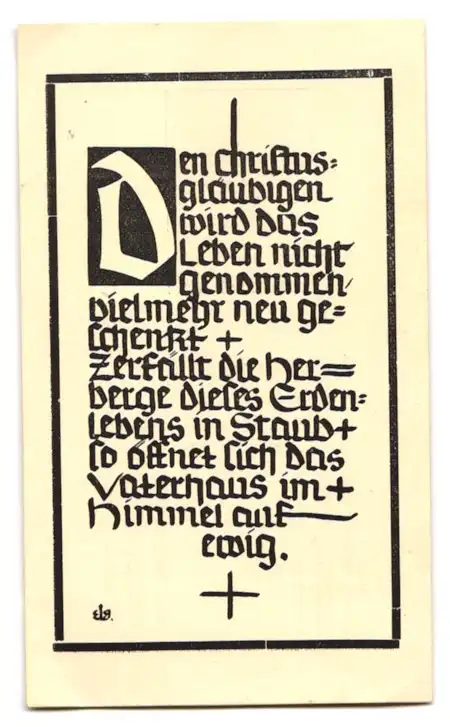 Den Christus=
gläubigen
wird das
Leben nicht
genommen
vielmehr neu ge=
schenkt +
Zerfällt die Her=
berge dieses Erden=
lebens in Staub +
so öffnet sich das
Vaterhaus im +
Himmel auf
ewig.